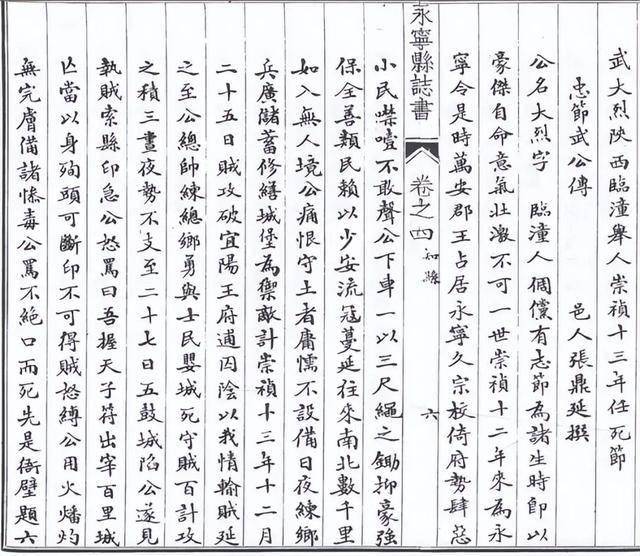 武大烈陝西臨潼舉人崇禎十三年任死節
忠節武公傳 邑人張鼎延撰
公名大烈字 臨潼人倜儻有志節為諸生時即以
豪傑自命意氣壯激不可一世崇禎十二年來為永
寧令是時萬安郡王占居永寧久宗校倚府勢肆惡
永寧縣誌書 卷之四 知縣 六
小民噤噎不敢聲公下車一以三尺繩之鋤抑豪強
保全善類民賴以少安流寇蔓延往來南北數千里
如入無人境公痛恨守土者庸懦不設備日夜練鄉
兵廣儲蓄修繕城堡為禦敵計崇禎十三年十二月
二十五日賊攻破宜陽王府逋囚陰以我情輸賊延
之至公總帥練總鄉勇與士民嬰城死守賊百計攻
之積三晝夜勢不支至二十七日五鼓城陷公遂見
執賊索縣印急公怒罵曰吾握天子符出宰百里城
亡當以身殉頭可斷印不可得賊怒縛公用火燔灼
無完膚備諸慘毒公罵不絕口而死先是衙壁題六